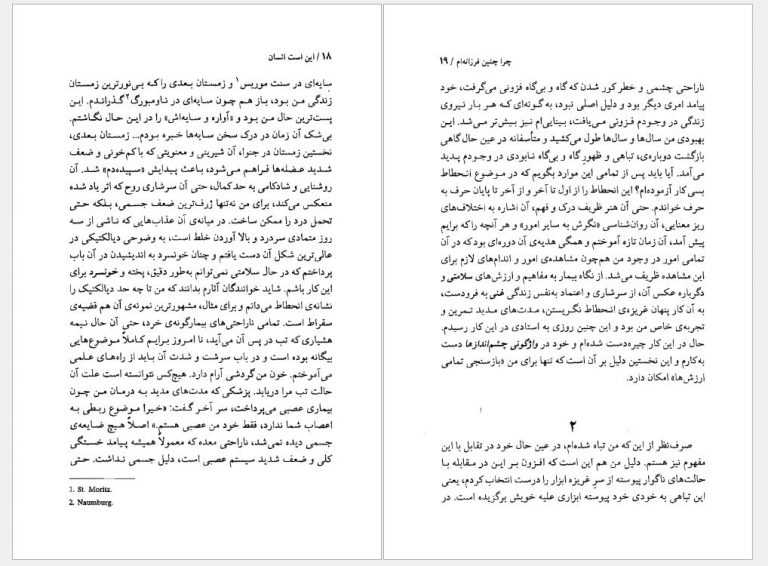 ۱۸ / این است انسان
سایه‌ای در سنت موریس۱ و زمستان بعدی را که بی‌نورترین زمستان
زندگی من بود، باز هم چون سایه‌ای در ناومبورگ۲ گذراندم. این
پست‌ترین حال من بود و «آواره و سایه‌اش» را در این حال نگاشتم.
بی‌شک آن زمان در درک سخن سایه‌ها خبره بودم... زمستان بعدی،
نخستین زمستان در جنوا، آن شیرینی و معنویتی که با کم‌خونی و ضعف
شدید عضله‌ها فراهم می‌شود، باعث پیدایش «سپیده‌دم» شد. آن
روشنایی و شادکامی به حد کمال، حتی آن سرشاری روح که اثر یاد شده
منعکس می‌کند، برای من نه‌تنها ژرف‌ترین ضعف جسمی، بلکه حتی
تحمل درد را ممکن ساخت. در میانه‌ی آن عذاب‌هایی که ناشی از سه
روز متمادی سردرد و بالا آوردن خلط است، به وضوحی دیالکتیکی در
عالی‌ترین شکل آن دست یافتم و چنان خونسرد به اندیشیدن در آن باب
پرداختم که در حال سلامتی نمی‌توانم به‌طور دقیق، پخته و خونسرد برای
این کار باشم. شاید خوانندگان آثارم بدانند که من تا چه حد دیالکتیک را
نشانه‌ی انحطاط می‌دانم و برای مثال، مشهورترین نمونه‌ی آن هم قضیه‌ی
سقراط است. تمامی ناراحتی‌های بیمارگونه‌ی خرد، حتی آن حال نیمه
هشیاری که تب در پس آن می‌آید، تا امروز برایم کاملاً موضوع‌هایی
بیگانه بوده است و در باب سرشت و شدت آن باید از راه‌های علمی
می‌آموختم. خون من گردشی آرام دارد. هیچ‌کس نتوانسته است علت آن
حالت تب مرا دریابد. پزشکی که مدت‌های مدید به درمان من چون
بیماری عصبی می‌پرداخت، سر آخر گفت: «خیر! موضوع ربطی به
اعصاب شما ندارد، فقط خود من عصبی هستم.» اصلاً هیچ ضایعه‌ی
جسمی دیده نمی‌شد، ناراحتی معده که معمولاً همیشه پیامد خستگی
کلی و ضعف شدید سیستم عصبی است، دلیل جسمی نداشت. حتی
1. St. Moritz.
2. Naumburg.
چرا چنین فرزانه‌ام / ۱۹
ناراحتی چشمی و خطر کور شدن که گاه و بی‌گاه فزونی می‌گرفت، خود
پیامد امری دیگر بود و دلیل اصلی نبود، به گونه‌ای که هر بار نیروی
زندگی در وجودم فزونی می‌یافت، بینایی‌ام نیز بیش‌تر می‌شد. این
بهبودی من سال‌ها و سال‌ها طول می‌کشید و متأسفانه در عین حال گاهی
بازگشت دوباره‌ی، تباهی و ظهور گاه و بی‌گاه نابودی در وجودم پدید
می‌آمد. آیا باید پس از تمامی این موارد بگویم که در موضوع انحطاط
بسی کار آزموده‌ام؟ این انحطاط را از اول تا آخر و از آخر تا پایان حرف به
حرف خواندم. حتی آن هنر ظریف درک و فهم، آن اشاره به اختلاف‌های
ریز معنایی، آن روان‌شناسی «نگرش به سایر امور» و هر آنچه را که برایم
پیش آمد، آن زمان تازه آموختم و همگی هدیه‌ی آن دوره‌ای بود که در آن
تمامی امور در وجود من هم‌چون مشاهده‌ی امور و اندام‌های لازم برای
این مشاهده ظریف می‌شد. از نگاه بیمار به مفاهیم و ارزش‌های سلامتی و
دگرباره عکس آن، از سرشاری و اعتماد به‌نفس زندگی غنی به فرودست،
به آن کار پنهان غریزه‌ی انحطاط نگریستن، مدت‌های مدید تمرین و
تجربه‌ی خاص من بود و این چنین روزی به استادی در این کار رسیدم.
حال در این کار چیره‌دست شده‌ام و خود در واژگونی چشم‌اندازها دست
به‌کارم و این نخستین دلیل بر آن است که تنها برای من «بازسنجی تمامی
ارزش‌ها» امکان دارد.
۲
صرف‌نظر از این که من تباه شده‌ام، در عین حال خود در تقابل با این
مفهوم نیز هستم. دلیل من هم این است که افزون بر این در مقابله با
حالت‌های ناگوار پیوسته از سر غریزه ابزار را درست انتخاب کردم، یعنی
این تباهی به خودی خود پیوسته ابزاری علیه خویش برگزیده است. در